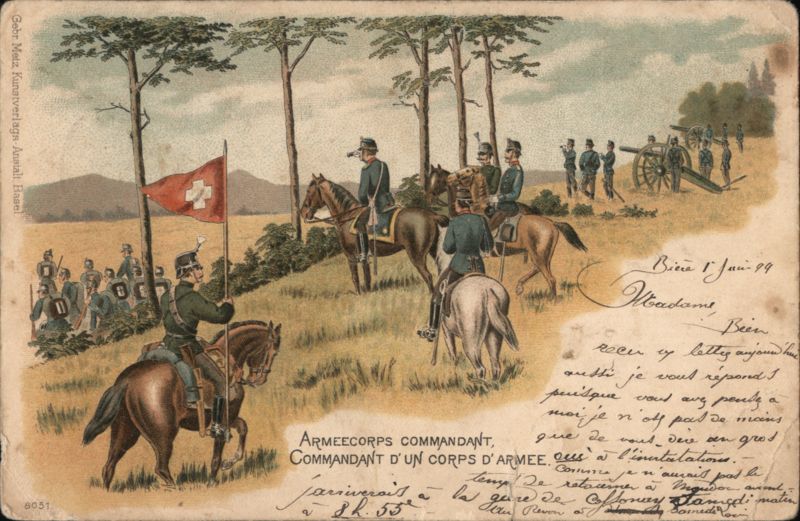 Gebr. Metz, Kunstverlags-Anstalt Basel
ARMEECORPS COMMANDANT,
COMMANDANT D'UN CORPS D'ARMEE.
8051
Bière 1r Juin 99
Madame
Bien
reçu lettre aujourd'hui
aussi je vous réponds
puisque vous avez à
moi je n'ai pas de moins
que de vous dire un gros
oui à l'invitation.
Comme je n'aurais pas le
temps de retourner à Moudon
j'arriverais à la gare de Cossonay Samedi matin
à 8h. 55
Au Revoir à Samedi